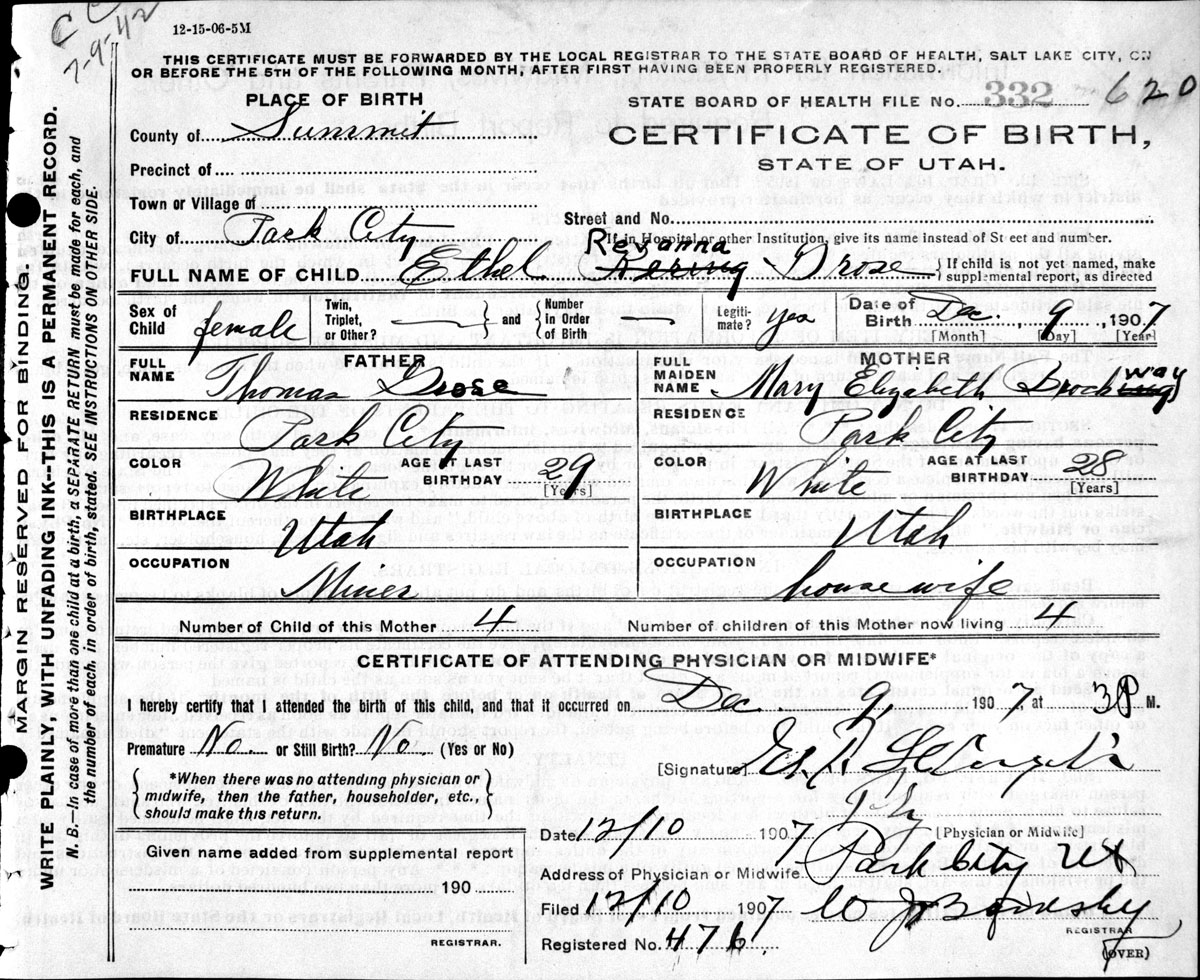 CC
7-9-42
12-15-06-5M
THIS CERTIFICATE MUST BE FORWARDED BY THE LOCAL REGISTRAR TO THE STATE BOARD OF HEALTH, SALT LAKE CITY, ON
OR BEFORE THE 5TH OF THE FOLLOWING MONTH, AFTER FIRST HAVING BEEN PROPERLY REGISTERED.
PLACE OF BIRTH
STATE BOARD OF HEALTH FILE No. 332 620
County of Summit
CERTIFICATE OF BIRTH,
STATE OF UTAH.
Precinct of
Town or Village of
Street and No.
City of Park City
If in Hospital or other Institution, give its name instead of Street and number.
Revanna
FULL NAME OF CHILD Ethel Drose
If child is not yet named, make
supplemental report, as directed
Sex of Child female
Twin, Triplet, or Other?
and
Number in Order of Birth
Legiti-mate? yes
Date of Birth Dec. 9, 1907
[Month] [Day] [Year]
FATHER
FULL NAME Thomas Drose
RESIDENCE
Park City
COLOR White AGE AT LAST BIRTHDAY 29
[Years]
BIRTHPLACE
Utah
OCCUPATION
Miner
MOTHER
FULL MAIDEN NAME Mary Elizabeth Brockway
RESIDENCE
Park City
COLOR White AGE AT LAST BIRTHDAY 28
[Years]
BIRTHPLACE
Utah
OCCUPATION
housewife
Number of Child of this Mother 4 Number of children of this Mother now living 4
CERTIFICATE OF ATTENDING PHYSICIAN OR MIDWIFE*
I hereby certify that I attended the birth of this child, and that it occurred on Dec 9, 1907 at 3 P M.
Premature No. or Still Birth? No. (Yes or No)
[Signature]
*When there was no attending physician or
midwife, then the father, householder, etc.,
should make this return.
Date 12/10 1907 [Physician or Midwife]
Given name added from supplemental report
190
REGISTRAR.
Address of Physician or Midwife Park City Ut
Filed 12/10 1907
REGISTRAR
Registered No. 476
(OVER)
MARGIN RESERVED FOR BINDING
WRITE PLAINLY, WITH UNFADING INK--THIS IS A PERMANENT RECORD.
N. B.--In case of more than one child at a birth, a SEPARATE RETURN must be made for each, and
the number of each, in order of birth, stated. SEE INSTRUCTIONS ON OTHER SIDE.